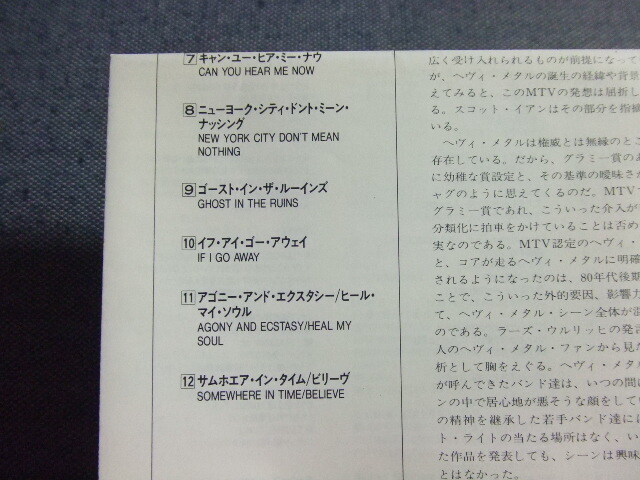 7 キャン・ユー・ヒア・ミー・ナウ
CAN YOU HEAR ME NOW
8 ニューヨーク・シティ・ドント・ミーン・
ナッシング
NEW YORK CITY DON'T MEAN
NOTHING
9 ゴースト・イン・ザ・ルーインズ
GHOST IN THE RUINS
10 イフ・アイ・ゴー・アウェイ
IF I GO AWAY
11 アゴニー・アンド・エクスタシー/ヒール・
マイ・ソウル
AGONY AND ECSTASY/HEAL MY
SOUL
12 サムホエア・イン・タイム/ビリーヴ
SOMEWHERE IN TIME/BELIEVE
広く受け入れられるものが前提になって
が、ヘヴィ・メタルの誕生の経緯や背景
えてみると、このMTVの発想は屈折し
る。スコット・イアンはその部分を指摘
いる。
ヘヴィ・メタルは権威とは無縁のとこ
存在している。だから、グラミー賞のあ
に幼稚な賞設定と、その基準の曖昧さが
ャグのように思えてくるのだ。MTVで
グラミー賞であれ、こういった介入が
分類化に拍車をかけていることは否め
実なのである。MTV認定のヘヴィ・
と、コアが走るヘヴィ・メタルに明確
されるようになったのは、80年代後期
ことで、こういった外的要因、影響力
て、ヘヴィ・メタル・シーン全体が混
のである。ラーズ・ウルリッヒの発言
人のヘヴィ・メタル・ファンから見た
析として胸をえぐる。ヘヴィ・メタル
が呼んできたバンド達は、いつの間に
ンの中で居心地が悪そうな顔をしてい
の精神を継承した若手バンド達には
ト・ライトの当たる場所はなく、い
た作品を発表しても、シーンは興味
とはなかった。